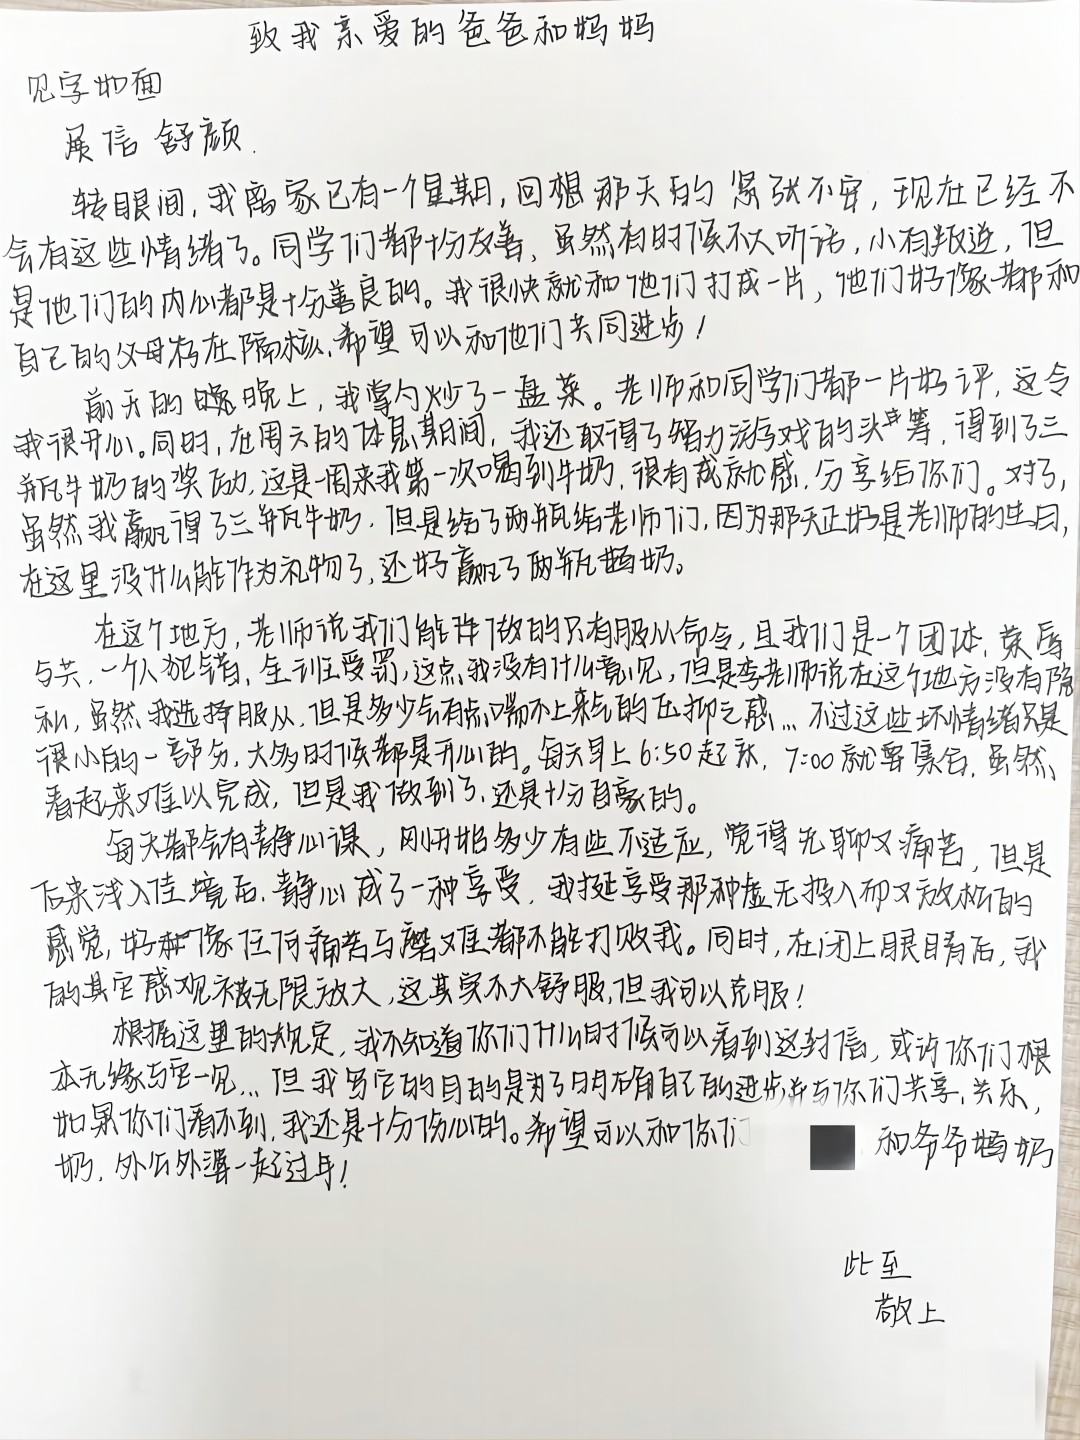 致我亲爱的爸爸和妈妈
见字如面
展信舒颜.
转眼间,我离家已有一个星期,回想那天的紧张不安,现在已经不
会有这些情绪了。同学们都十分友善,虽然有时候不大听话,小有叛逆,但
是他们的内心都是十分善良的。我很快就和他们打成一片,他们好像都和
自己的父母存在隔核,希望可以和他们共同进步!
前天的晚上,我掌勺炒了一盘菜。老师和同学们都一片好评,这令
我很开心。同时,在周六的休息期间,我还取得了智力游戏的头筹,得到了三
瓶牛奶的奖励,这是一周来我第一次喝到牛奶,很有成就感,分享给你们。对了,
虽然我赢得了三瓶牛奶,但是给了两瓶给老师们,因为那天正好是老师的生日,
在这里没什么能作为礼物了,还好赢了两瓶牛奶。
在这个地方,老师说我们能够做的只有服从命令,且我们是一个团体,荣辱
与共,一个人犯错,全班受罚,这点我没有什么意见,但是李老师说在这个地方没有隐
私,虽然我选择服从,但是多少会有点喘不上来气的压抑之感...不过这些坏情绪只是
很小的一部分,大多时候都是开心的。每天早上6:50起床,7:00就要集合,虽然
看起来难以完成,但是我做到了,还是十分自豪的。
每天都会有静心课,刚开始多少有些不适应,觉得无聊又痛苦,但是
后来浅入佳境后,静心成了一种享受,我挺享受那种虚无投入而又放松的
感觉,好像任何痛苦与磨难都不能打败我。同时,在闭上眼睛后,我
的其它感观被无限放大,这其实不大舒服,但我可以克服!
根据这里的规定,我不知道你们什么时候可以看到这封信,或许你们根
本无缘与它一见...但我写它的目的是为了明确自己的进步并与你们共享,共乐,
如果你们看不到,我还是十分伤心的。希望可以和你们 和爷爷奶
奶,外公外婆一起过年!
此至
敬上